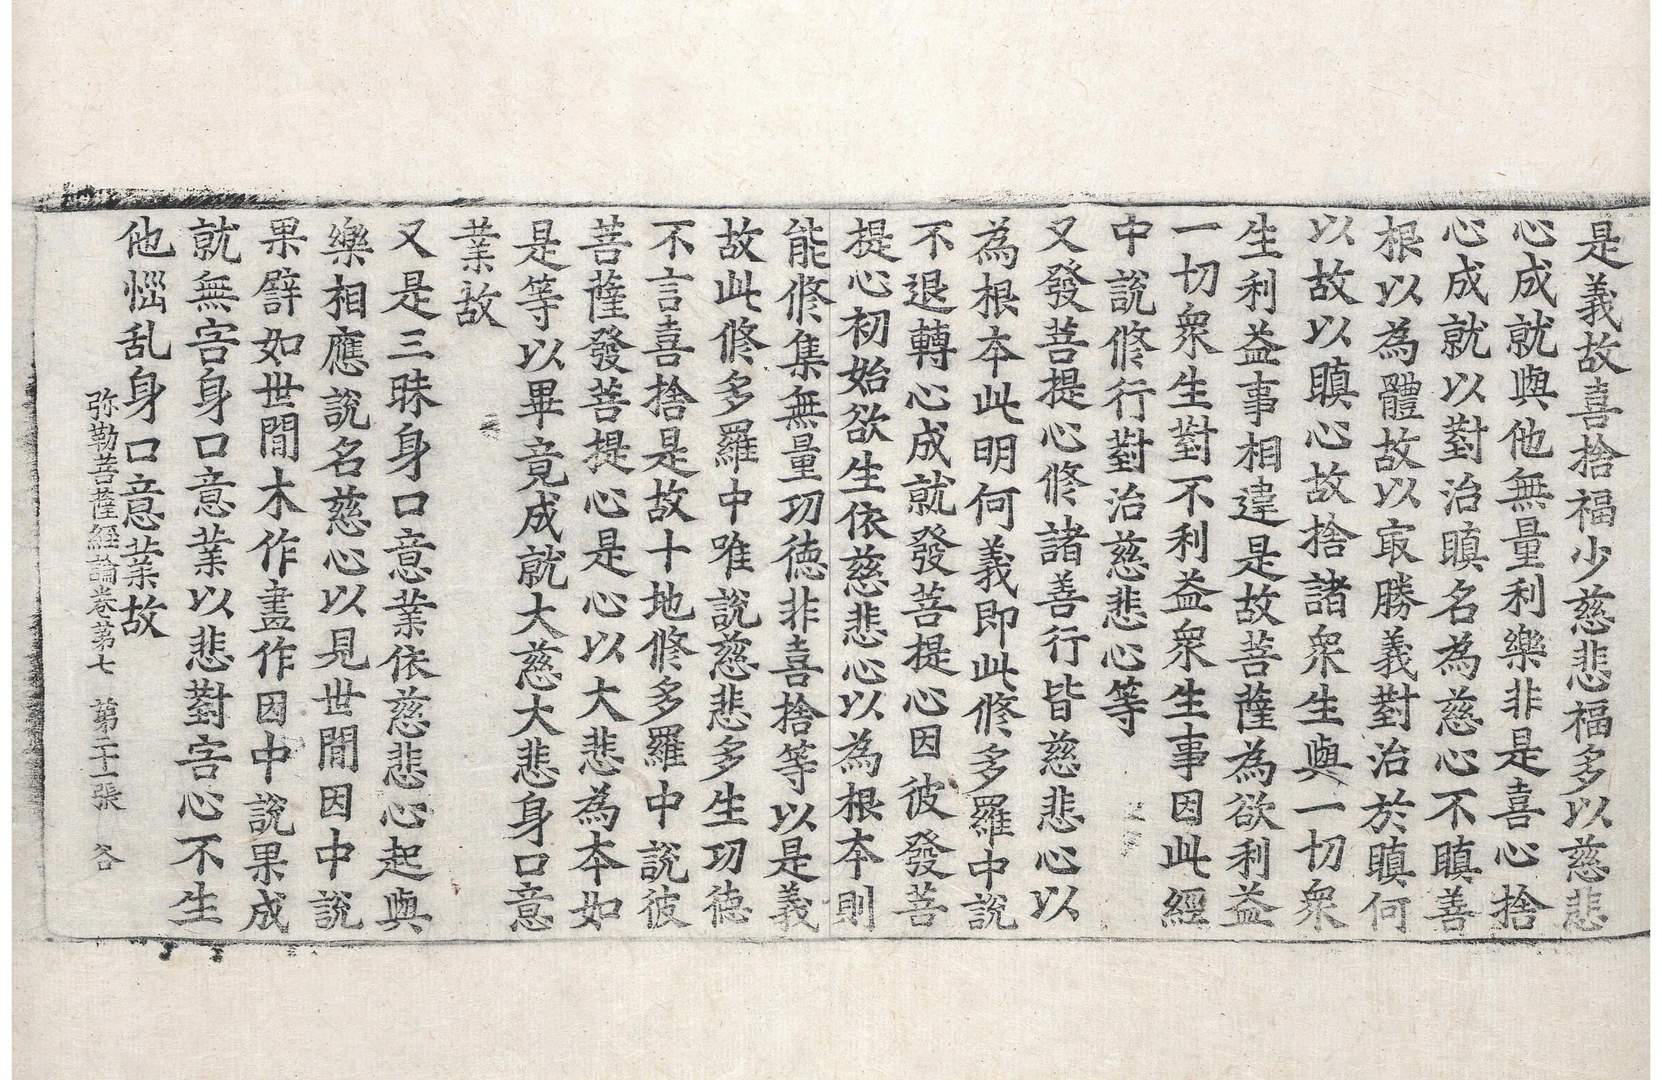 是義故喜捨福少慈悲福多以慈悲
心成就與他無量利樂非是喜心捨
心成就以對治瞋名為慈心不瞋善
根以為體故以㝡勝義對治於瞋何
以故以瞋心故捨諸衆生與一切衆
生利益事相違是故菩薩為欲利益
一切衆生對不利益衆生事因此經
中說修行對治慈悲心等
又發菩提心修諸善行皆慈悲心以
為根本此明何義即此修多羅中說
不退轉心成就發菩提心因彼發菩
提心初始欲生依慈悲心以為根本則
能修集無量功德非喜捨等以是義
故此修多羅中唯說慈悲多生功德
不言喜捨是故十地修多羅中說彼
菩薩發菩提心是心以大悲為本如
是等以畢竟成就大慈大悲身口意
業故
又是三昧身口意業依慈悲心起與
樂相應說名慈心以見世間因中說
果譬如世間木作畫作因中說果成
就無害身口意業以悲對害心不生
他惱乱身口意業故
弥勒菩薩經論卷第七　第二十一張　谷